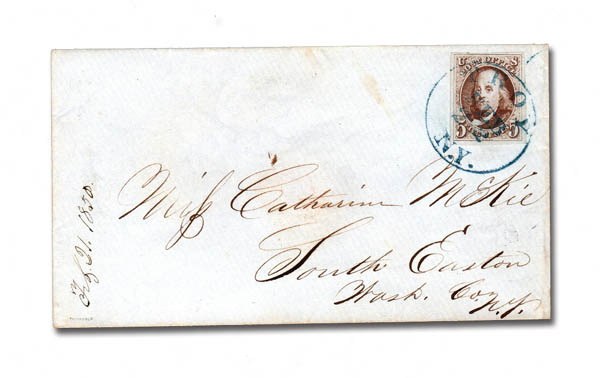 POST OFFICE
5 5
TROY
N.Y.
Miſs Catharine McKie
South Easton
Wash. Co. N.Y.
21. 1850.